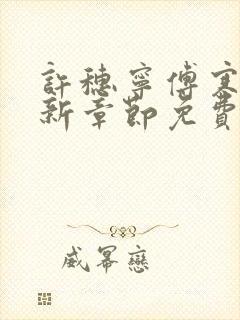 許穗寧傅寒
新章節免費
威冪戀